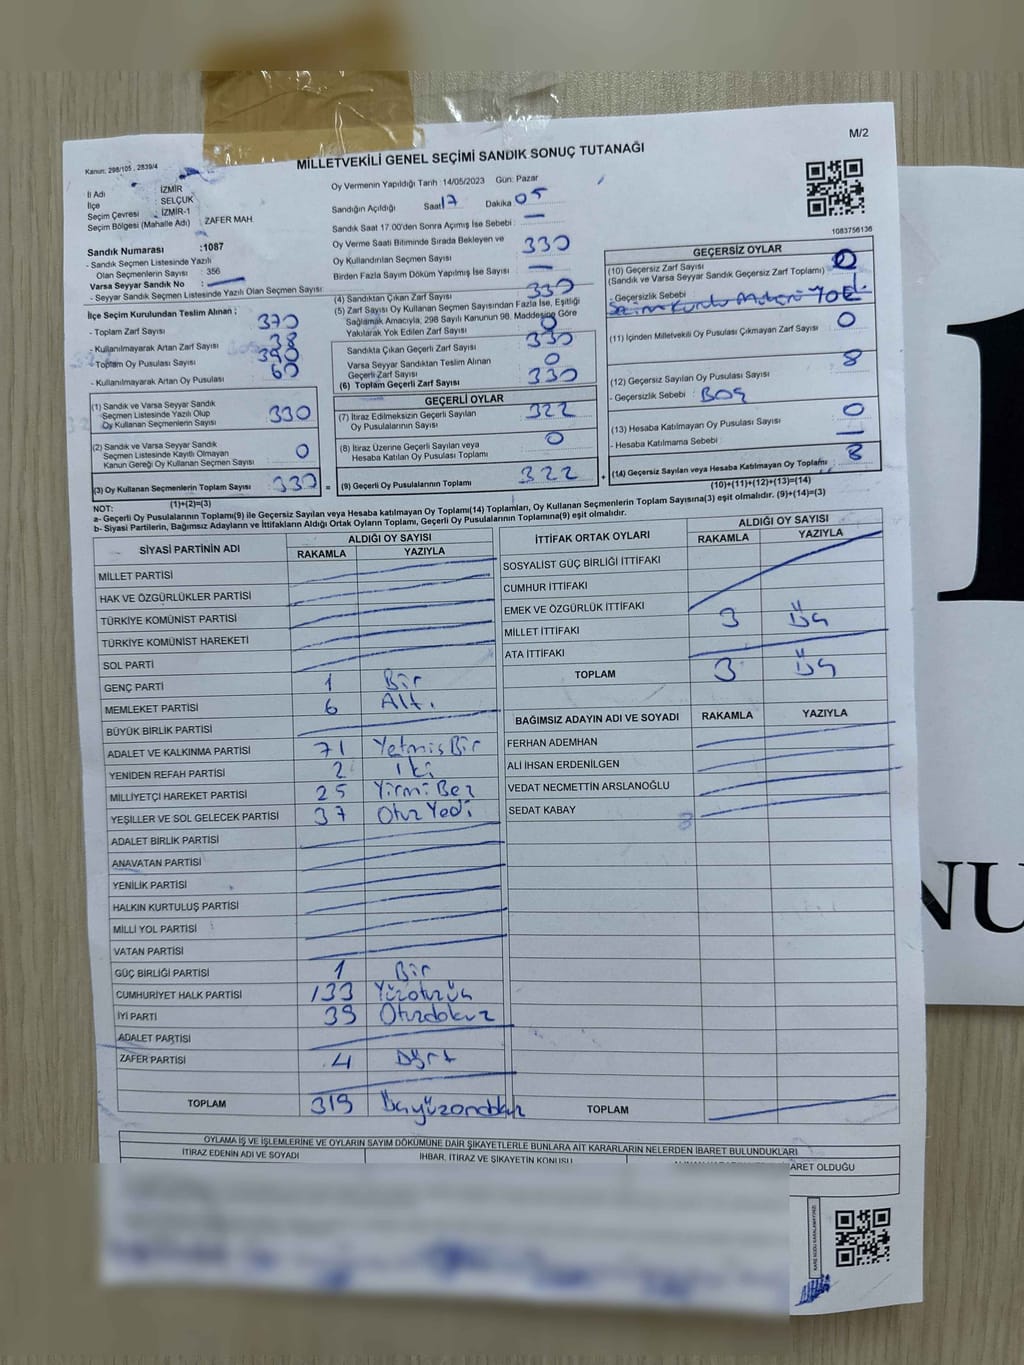 M/2
Kanun: 298/105 , 2839/4
MİLLETVEKİLİ GENEL SEÇİMİ SANDIK SONUÇ TUTANAĞI
İl Adı : İZMİR
İlçe : SELÇUK
Seçim Çevresi : İZMİR-1
Seçim Bölgesi (Mahalle Adı) : ZAFER MAH
Oy Vermenin Yapıldığı Tarih :14/05/2023 Gün: Pazar
Sandığın Açıldığı Saat 17 Dakika 05
Sandık Saat 17.00'den Sonra Açımış İse Sebebi : —
Oy Verme Saati Bitiminde Sırada Bekleyen ve
Oy Kullandırılan Seçmen Sayısı : 330
Birden Fazla Sayım Döküm Yapılmış İse Sayısı : —
1083756136
Sandık Numarası :1087
- Sandık Seçmen Listesinde Yazılı
Olan Seçmenlerin Sayısı : 356
Varsa Seyyar Sandık No :
- Seyyar Sandık Seçmen Listesinde Yazılı Olan Seçmen Sayısı :
İlçe Seçim Kurulundan Teslim Alınan ;
- Toplam Zarf Sayısı : 370
- Kullanılmayarak Artan Zarf Sayısı : 38
- Toplam Oy Pusulası Sayısı : 390
- Kullanılmayarak Artan Oy Pusulası : 60
(1) Sandık ve Varsa Seyyar Sandık
Seçmen Listesinde Yazılı Olup
Oy Kullanan Seçmenlerin Sayısı : 330
(2) Sandık ve Varsa Seyyar Sandık
Seçmen Listesinde Kayıtlı Olmayan
Kanun Gereği Oy Kullanan Seçmen Sayısı : 0
(3) Oy Kullanan Seçmenlerin Toplam Sayısı : 330
(1)+(2)=(3)
(4) Sandıktan Çıkan Zarf Sayısı : 330
(5) Zarf Sayısı Oy Kullanan Seçmen Sayısından Fazla İse, Eşitliği
Sağlamak Amacıyla, 298 Sayılı Kanunun 98. Maddesine Göre
Yakılarak Yok Edilen Zarf Sayısı : 0
Sandıkta Çıkan Geçerli Zarf Sayısı : 330
Varsa Seyyar Sandıktan Teslim Alınan
Geçerli Zarf Sayısı : 0
(6) Toplam Geçerli Zarf Sayısı : 330
GEÇERLİ OYLAR
(7) İtiraz Edilmeksizin Geçerli Sayılan
Oy Pusulalarının Sayısı : 322
(8) İtiraz Üzerine Geçerli Sayılan veya
Hesaba Katılan Oy Pusulası Toplamı : 0
= (9) Geçerli Oy Pusulalarının Toplamı : 322
GEÇERSİZ OYLAR
(10) Geçersiz Zarf Sayısı : 0
(Sandık ve Varsa Seyyar Sandık Geçersiz Zarf Toplamı)
- Geçersizlik Sebebi :
(11) İçinden Milletvekili Oy Pusulası Çıkmayan Zarf Sayısı : 0
(12) Geçersiz Sayılan Oy Pusulası Sayısı : 8
- Geçersizlik Sebebi : BOŞ
(13) Hesaba Katılmayan Oy Pusulası Sayısı : 0
- Hesaba Katılmama Sebebi : —
+ (14) Geçersiz Sayılan veya Hesaba Katılmayan Oy Toplamı : 8
(10)+(11)+(12)+(13)=(14)
NOT:
a- Geçerli Oy Pusulalarının Toplamı(9) ile Geçersiz Sayılan veya Hesaba katılmayan Oy Toplamı(14) Toplamları, Oy Kullanan Seçmenlerin Toplam Sayısına(3) eşit olmalıdır. (9)+(14)=(3)
b- Siyasi Partilerin, Bağımsız Adayların ve İttifakların Aldığı Ortak Oyların Toplamı, Geçerli Oy Pusulalarının Toplamına(9) eşit olmalıdır.
SİYASİ PARTİNİN ADI ALDIĞI OY SAYISI
RAKAMLA YAZIYLA
MİLLET PARTİSİ
HAK VE ÖZGÜRLÜKLER PARTİSİ
TÜRKİYE KOMÜNİST PARTİSİ
TÜRKİYE KOMÜNİST HAREKETİ
SOL PARTİ
GENÇ PARTİ 1 Bir
MEMLEKET PARTİSİ 6 Altı
BÜYÜK BİRLİK PARTİSİ
ADALET VE KALKINMA PARTİSİ 71 Yetmiş Bir
YENİDEN REFAH PARTİSİ 2 İki
MİLLİYETÇİ HAREKET PARTİSİ 25 Yirmi Beş
YEŞİLLER VE SOL GELECEK PARTİSİ 37 Otuz Yedi
ADALET BİRLİK PARTİSİ
ANAVATAN PARTİSİ
YENİLİK PARTİSİ
HALKIN KURTULUŞ PARTİSİ
MİLLİ YOL PARTİSİ
VATAN PARTİSİ
GÜÇ BİRLİĞİ PARTİSİ 1 Bir
CUMHURİYET HALK PARTİSİ 133 Yüzotuzüç
İYİ PARTİ 39 Otuzdokuz
ADALET PARTİSİ
ZAFER PARTİSİ 4 Dört
TOPLAM 319 Üçyüzondokuz
İTTİFAK ORTAK OYLARI ALDIĞI OY SAYISI
RAKAMLA YAZIYLA
SOSYALİST GÜÇ BİRLİĞİ İTTİFAKI
CUMHUR İTTİFAKI
EMEK VE ÖZGÜRLÜK İTTİFAKI
MİLLET İTTİFAKI 3 Üç
ATA İTTİFAKI
TOPLAM 3 Üç
BAĞIMSIZ ADAYIN ADI VE SOYADI RAKAMLA YAZIYLA
FERHAN ADEMHAN
ALİ İHSAN ERDENİLGEN
VEDAT NECMETTİN ARSLANOĞLU
SEDAT KABAY
TOPLAM
OYLAMA İŞ VE İŞLEMLERİNE VE OYLARIN SAYIM DÖKÜMÜNE DAİR ŞİKAYETLERLE BUNLARA AİT KARARLARIN NELERDEN İBARET BULUNDUKLARI
İTİRAZ EDENİN ADI VE SOYADI İHBAR, İTİRAZ VE ŞİKAYETİN KONUSU
NU